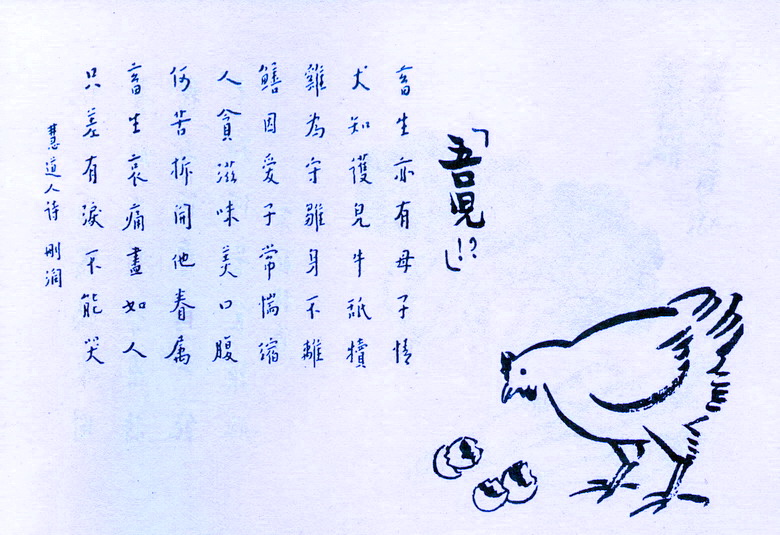 「吾兒!?」
畜生亦有母子情
犬知護兒牛舐犢
雞為守雛身不離
鱔因愛子常惴縮
人貪滋味美口腹
何苦拆開他眷屬
畜生哀痛盡如人
只差有淚不能哭
慧道人詩 剛潤